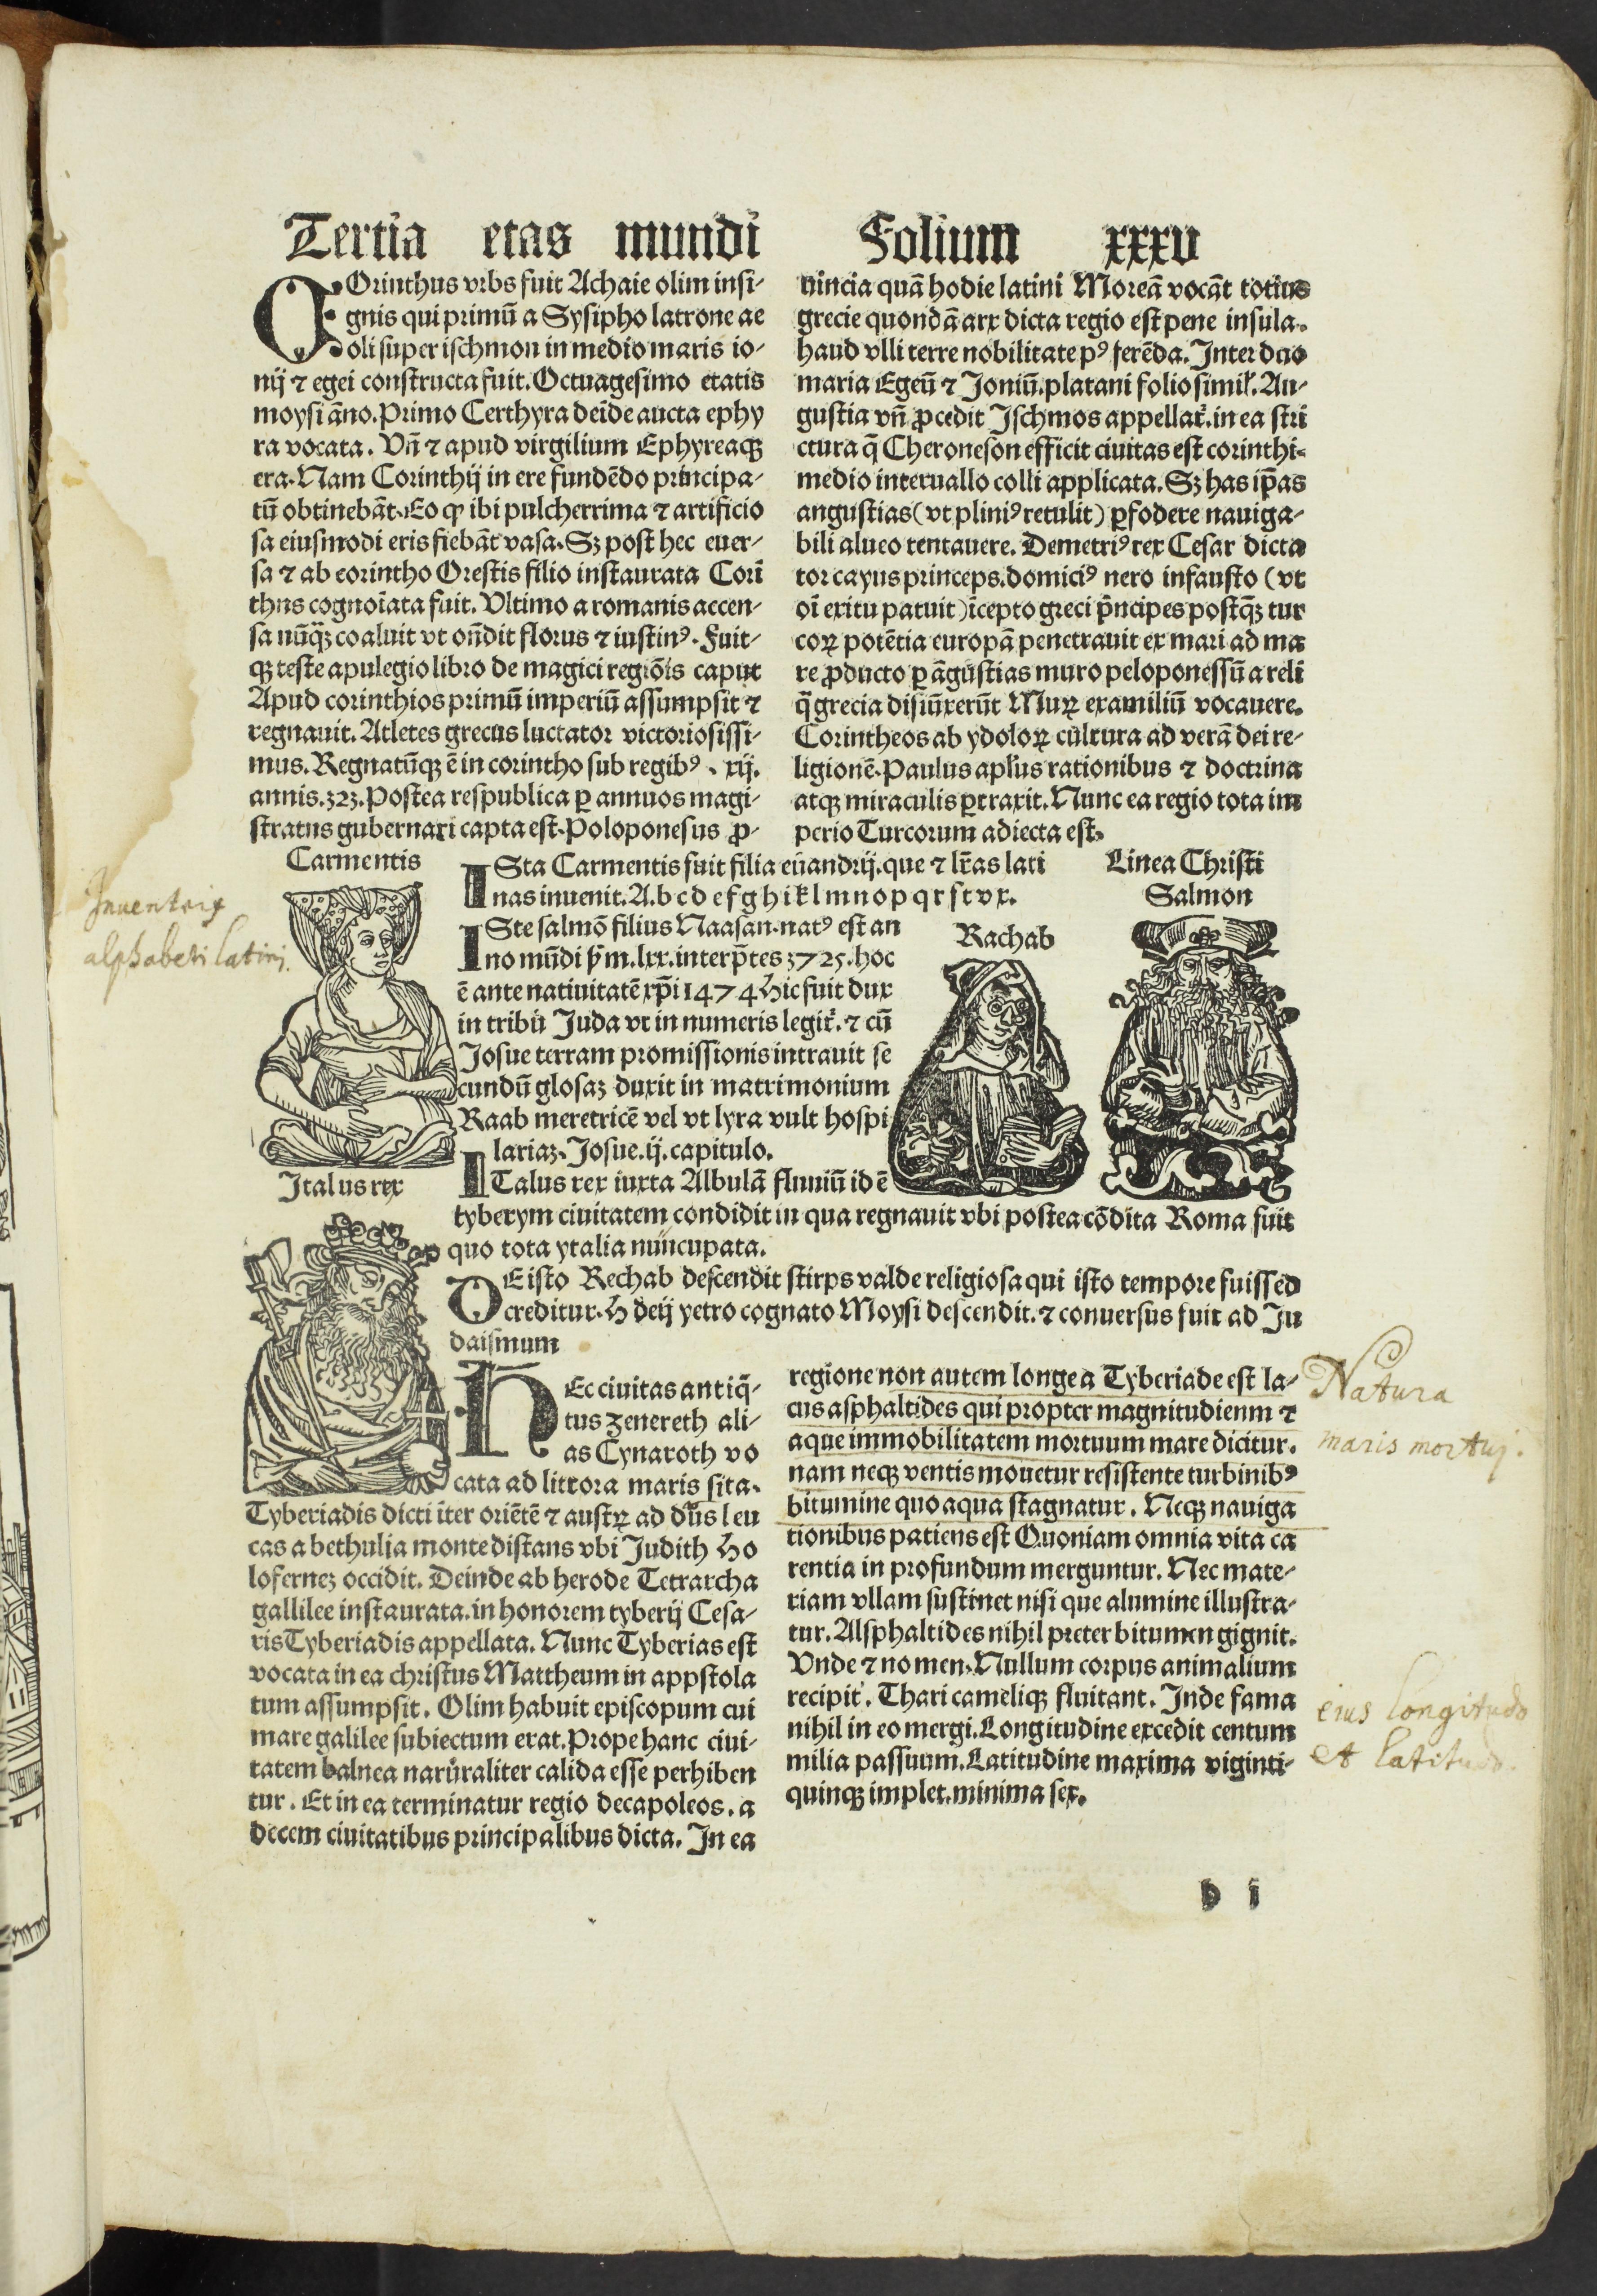 Tertia etas mundi
Folium xxxv
COrinthus vrbs fuit Achaie olim insi-
gnis qui primū a Sysipho latrone ae
oli super ischmon in medio maris io-
nij ⁊ egei constructa fuit. Octuagesimo etatis
moysi āno. Primo Certhyra deīde aucta ephy
ra vocata. Vn̄ ⁊ apud virgilium Ephyreaqꝫ
era. Nam Corinthij in ere fundēdo principa-
tū obtinebāt. Eo ꝙ ibi pulcherrima ⁊ artificio
sa eiusmodi eris fiebāt vasa. Sꝫ post hec euer-
sa ⁊ ab corintho Orestis filio instaurata Corī
thus cognoīata fuit. Vltimo a romanis accen-
sa nūqꝫ coaluit vt on̄dit florus ⁊ iustinꝰ. Fuit-
qꝫ teste apulegio libro de magici regiōis caput
Apud corinthios primū imperiū assumpsit ⁊
regnauit. Atletes grecus luctator victoriosissi-
mus. Regnatūqꝫ ē in corintho sub regibꝰ. xij.
annis. 323. Postea respublica ꝑ annuos magi-
stratus gubernari capta est. Poloponesus ꝓ-
uincia quā hodie latini Moreā vocāt totius
grecie quondā arx dicta regio est pene insula.
haud vlli terre nobilitate pꝰ ferēda. Inter duo
maria Egeū ⁊ Joniū. platani folio simil̓. An-
gustia vn̄ ꝓcedit Ischmos appellat̓. in ea stri
ctura q̄ Cheroneson efficit ciuitas est corinthi-
medio interuallo colli applicata. Sꝫ has ip̄as
angustias (vt pliniꝰ retulit) ꝑfodere nauiga-
bili alueo tentauere. Demetriꝰ rex Cesar dicta
tor cayus princeps. domiciꝰ nero infausto (vt
oī exitu patuit) īcepto greci p̄ncipes postqꝫ tur
coꝝ potētia europā penetrauit ex mari ad ma
re ꝓducto ꝑ āgustias muro peloponessū a reli
q̄ grecia disiūxerūt Muꝝ examiliū vocauere.
Corintheos ab ydoloꝝ cultura ad verā dei re-
ligionē. Paulus apl̓us rationibus ⁊ doctrina
atqꝫ miraculis ꝑtraxit. Nunc ea regio tota im
perio Turcorum adiecta est.
Carmentis
Inuentrix
alphabeti latini.
ISta Carmentis fuit filia euandrij. que ⁊ lr̄as lati
nas inuenit. A. b c d e f g h i k l m n o p q r s t v x.
Linea Christi
Salmon
Rachab
ISte salmō filius Naasan. natꝰ est an
no mūdi ẜm. lxx. interp̄tes 3725. hoc
ē ante natiuitatē xp̄i 1474 Hic fuit dux
in tribu Juda vt in numeris legit̓. ⁊ cū
Josue terram promissionis intrauit se
cundū glosaꝫ duxit in matrimonium
Raab meretricē vel vt lyra vult hospi
lariaꝫ. Josue. ij. capitulo.
Italus rex
ITalus rex iuxta Albulā fluuiū id ē
tyberym ciuitatem condidit in qua regnauit vbi postea cōdita Roma fuit
quo tota ytalia nuncupata.
DE isto Rechab descendit stirps valde religiosa qui isto tempore fuisse
creditur. H deij yetro cognato Moysi descendit. ⁊ conuersus fuit ad Ju
daismum
HEc ciuitas antiq̄-
tus zenereth ali-
as Cynaroth vo
cata ad littora maris sita.
Tyberiadis dicti īter oriētē ⁊ austꝝ ad duas leu
cas a bethulia monte distans vbi Judith Ho
lofernez occidit. Deinde ab herode Tetrarcha
gallilee instaurata. in honorem tyberij Cesa-
ris Tyberiadis appellata. Nunc Tyberias est
vocata in ea christus Mattheum in appstola
tum assumpsit. Olim habuit episcopum cui
mare galilee subiectum erat. Prope hanc ciui-
tatem balnea naturaliter calida esse perhiben
tur. Et in ea terminatur regio decapoleos. a
decem ciuitatibus principalibus dicta. In ea
regione non autem longe a Tyberiade est la-
cus asphaltides qui propter magnitudienm ⁊
aque immobilitatem mortuum mare dicitur.
nam neqꝫ ventis mouetur resistente turbinibꝰ
bitumine quo aqua stagnatur. Neqꝫ nauiga
tionibus patiens est Quoniam omnia vita ca
rentia in profundum merguntur. Nec mate-
riam vllam sustinet nisi que alumine illustra-
tur. Alsphaltides nihil preter bitumen gignit.
Vnde ⁊ nomen. Nullum corpus animalium
recipit. Thari cameliqꝫ fluitant. Inde fama
nihil in eo mergi. Longitudine excedit centum
milia passuum. Latitudine maxima viginti-
quinqꝫ implet. minima sex.
Natura
maris mortuj.
eius longitudo
et latitudo.
d i